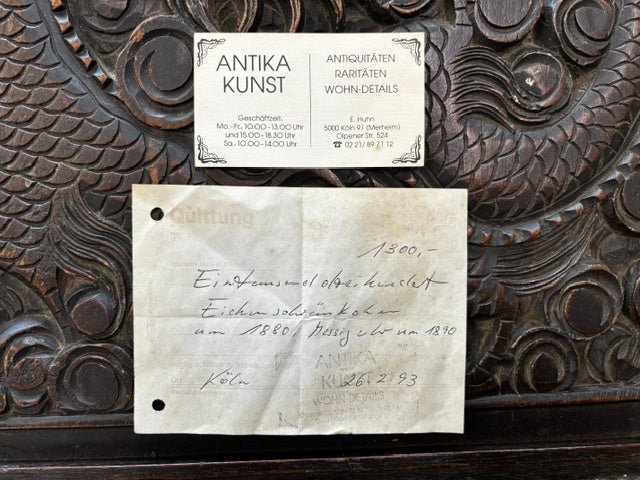 ANTIKA
KUNST
Geschäftzeit.
Mo.-Fr. 10.00-13.00 Uhr
und 15.00-18.30 Uhr
Sa. 10.00-14.00 Uhr
ANTIQUITÄTEN
RARITÄTEN
WOHN-DETAILS
E. Huhn
5000 Köln 91 (Merheim)
Olpener Str. 524
☎ 02 21/89 71 12
Quittung
1300,-
Eintausenddreihundert
Eichenschränkchen
um 1880, Messinguhr um 1890
ANTIKA
KUNST
WOHN-DETAILS
Köln 26.2.93